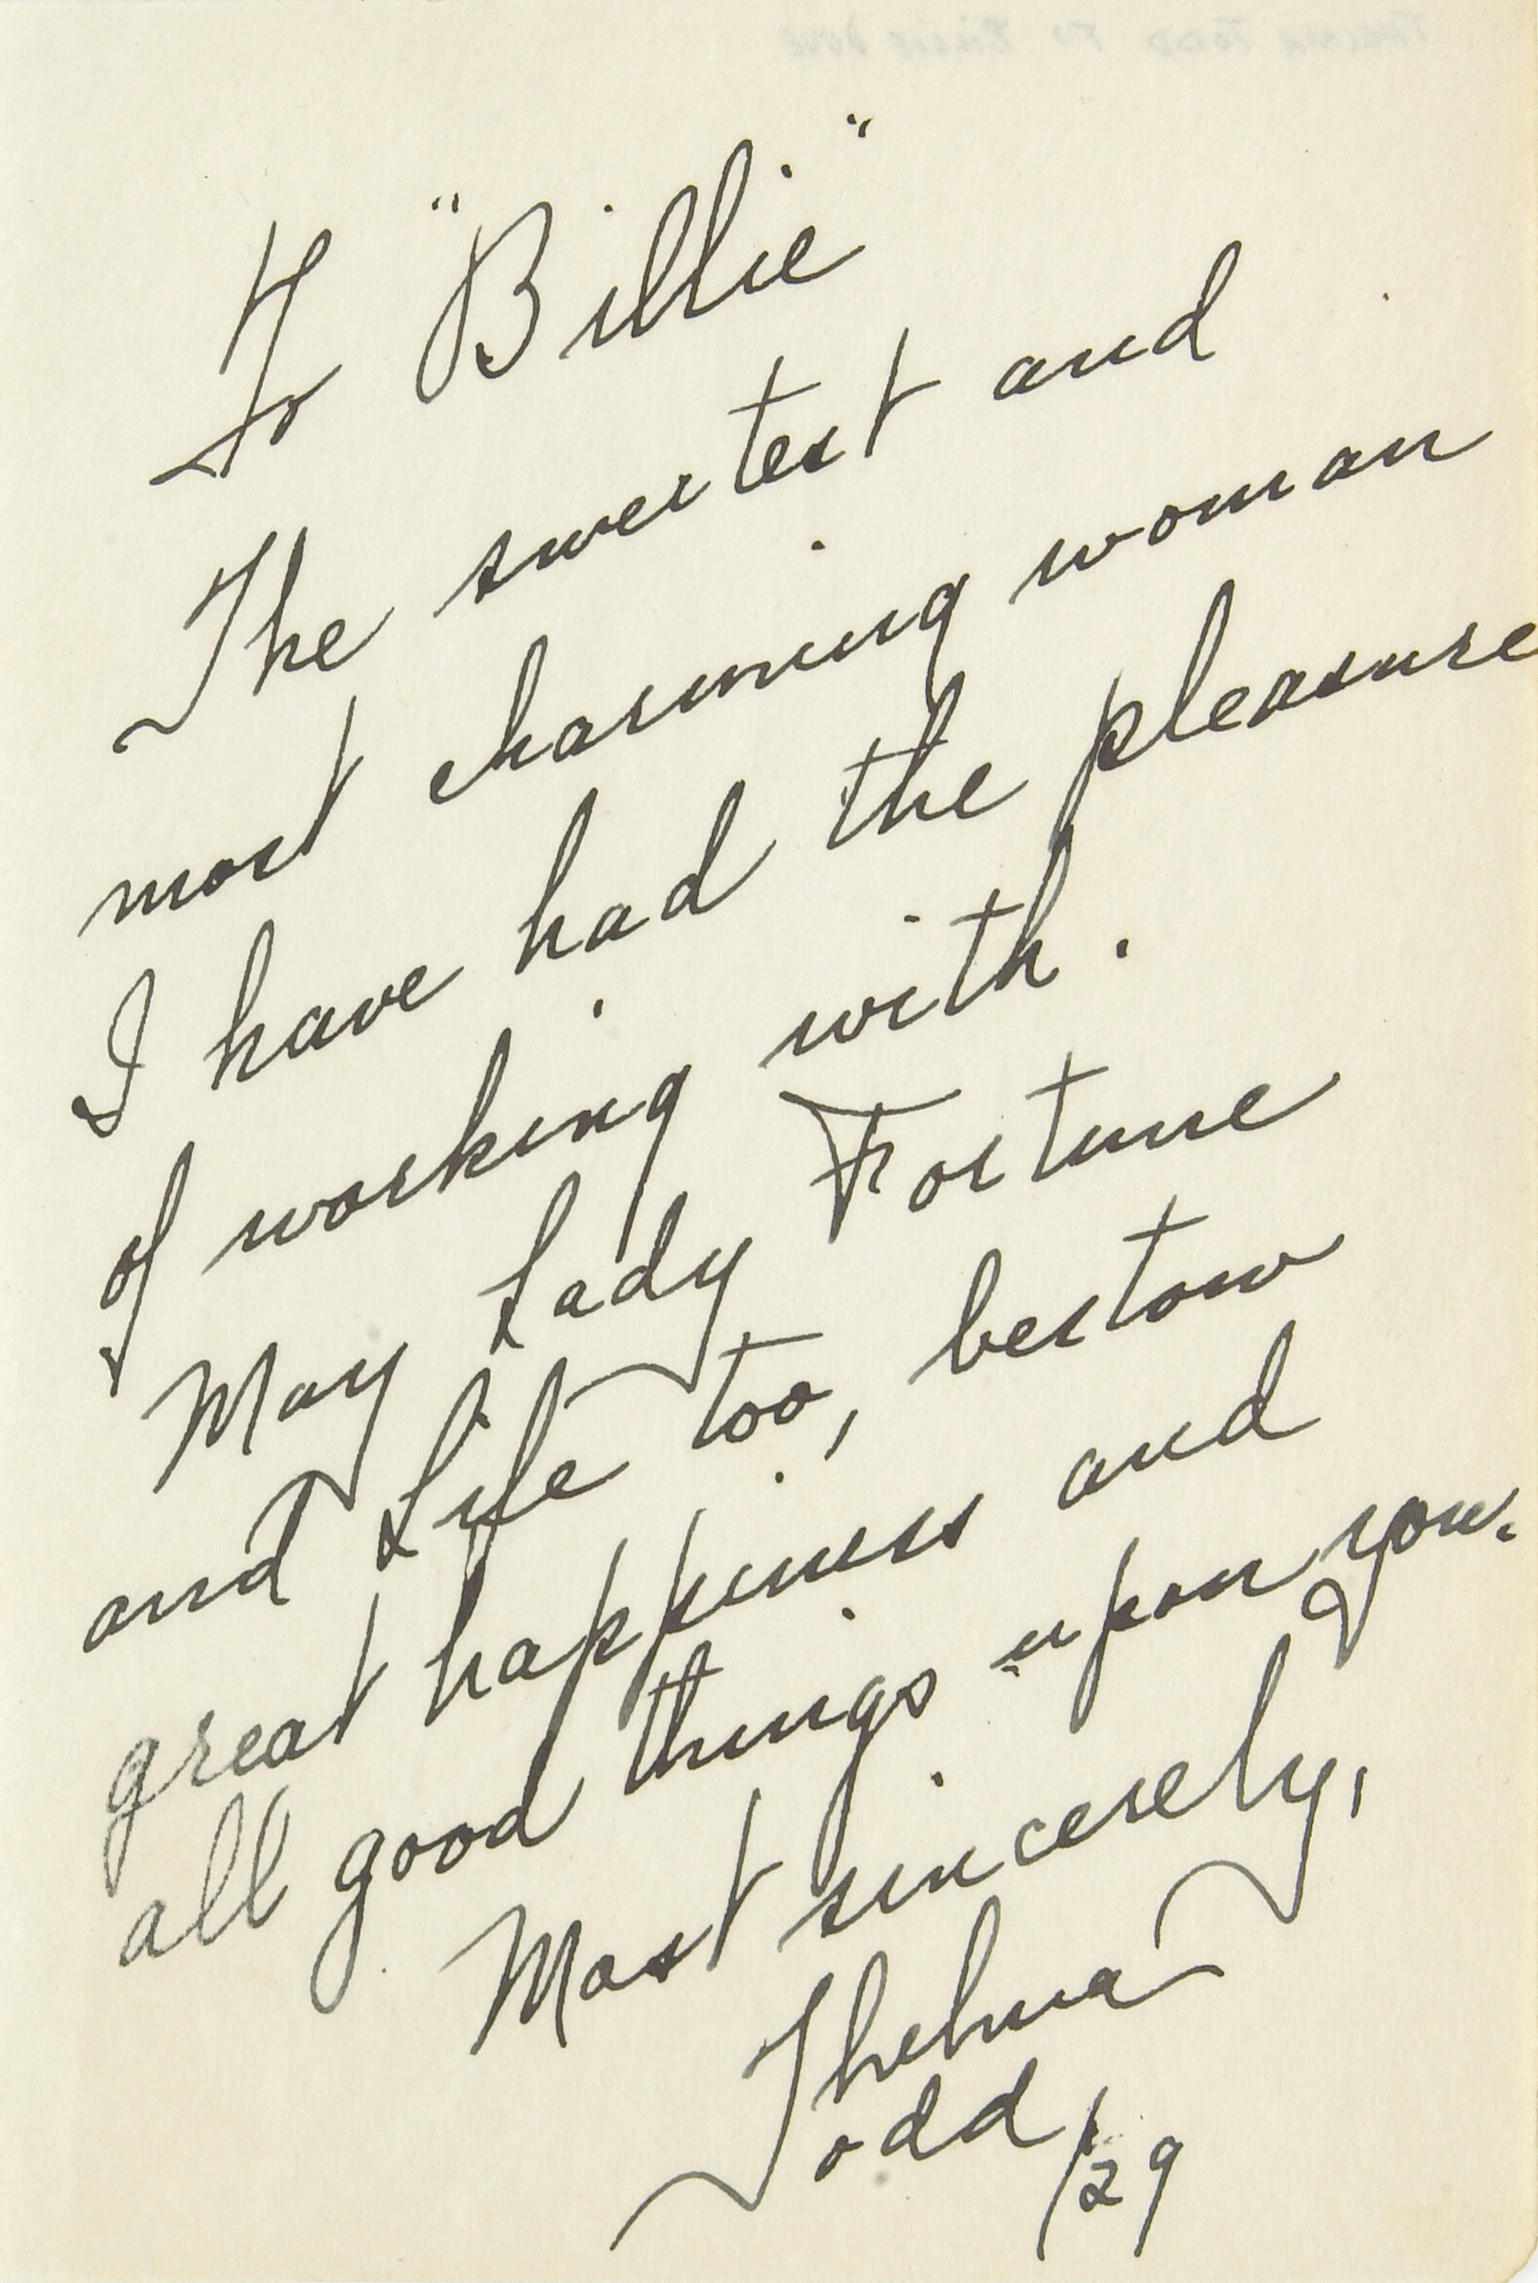 To "Billie"
The sweetest and
most charming woman
I have had the pleasure
of working with.
May Lady Fortune
and Life too, bestow
great happiness and
all good things upon you.
Most sincerely,
Thelma
Todd /29